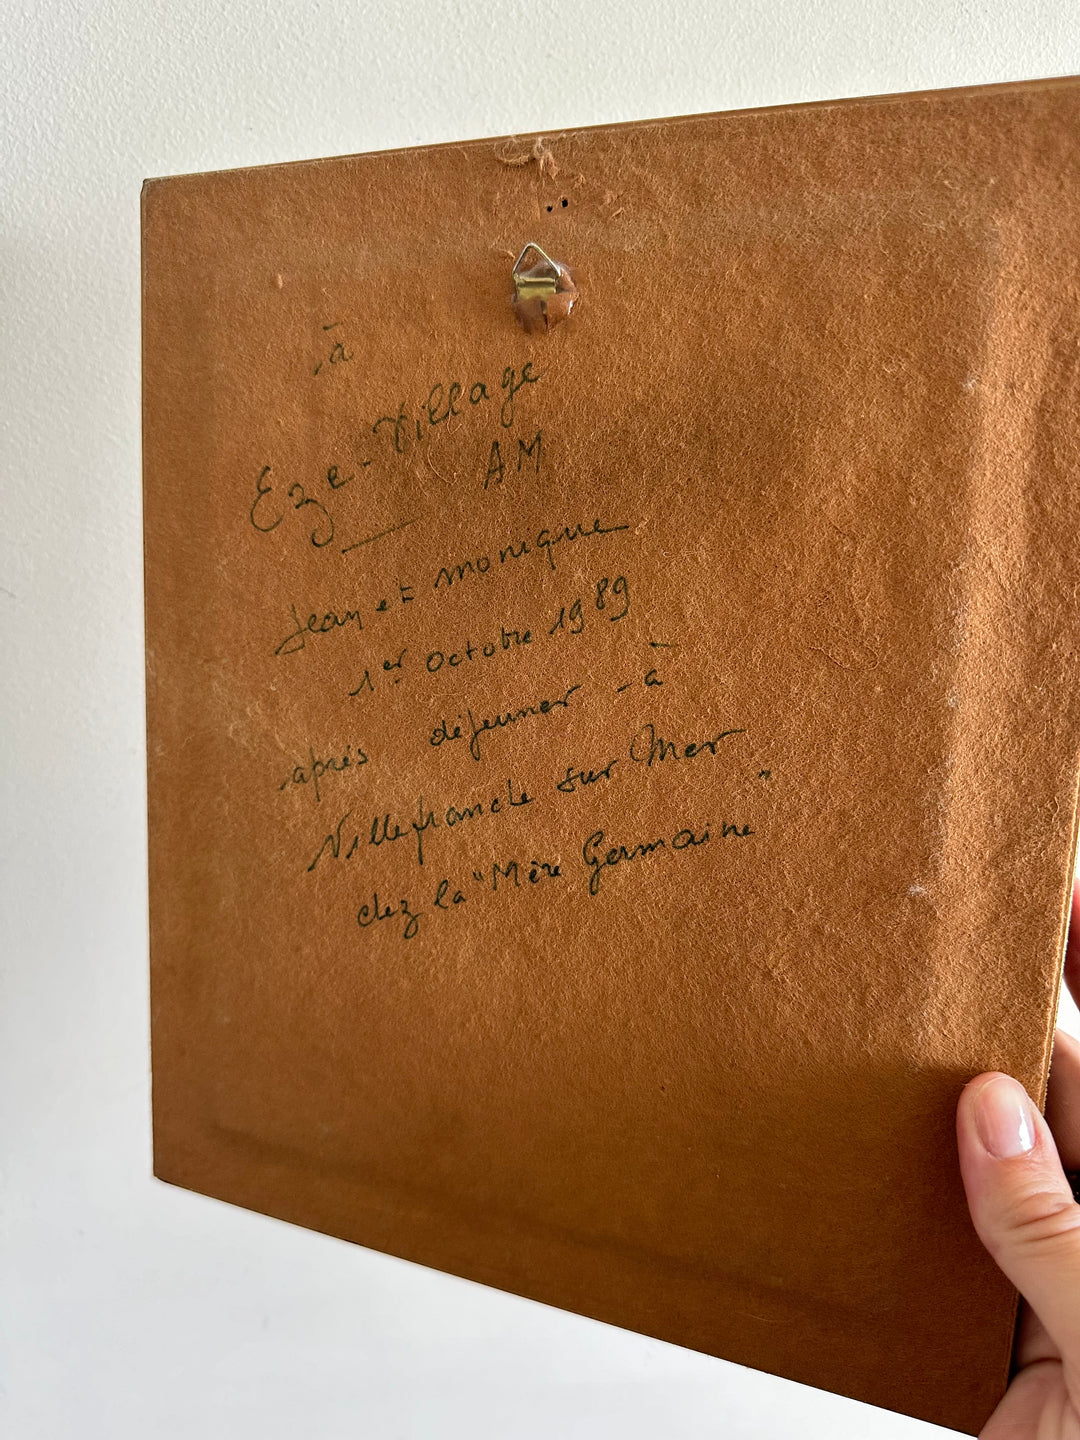 à
Eze-Village
AM
Jean et monique
1er Octobre 1989
après déjeuner - à
Villefranche sur Mer
chez la "Mère Germaine"